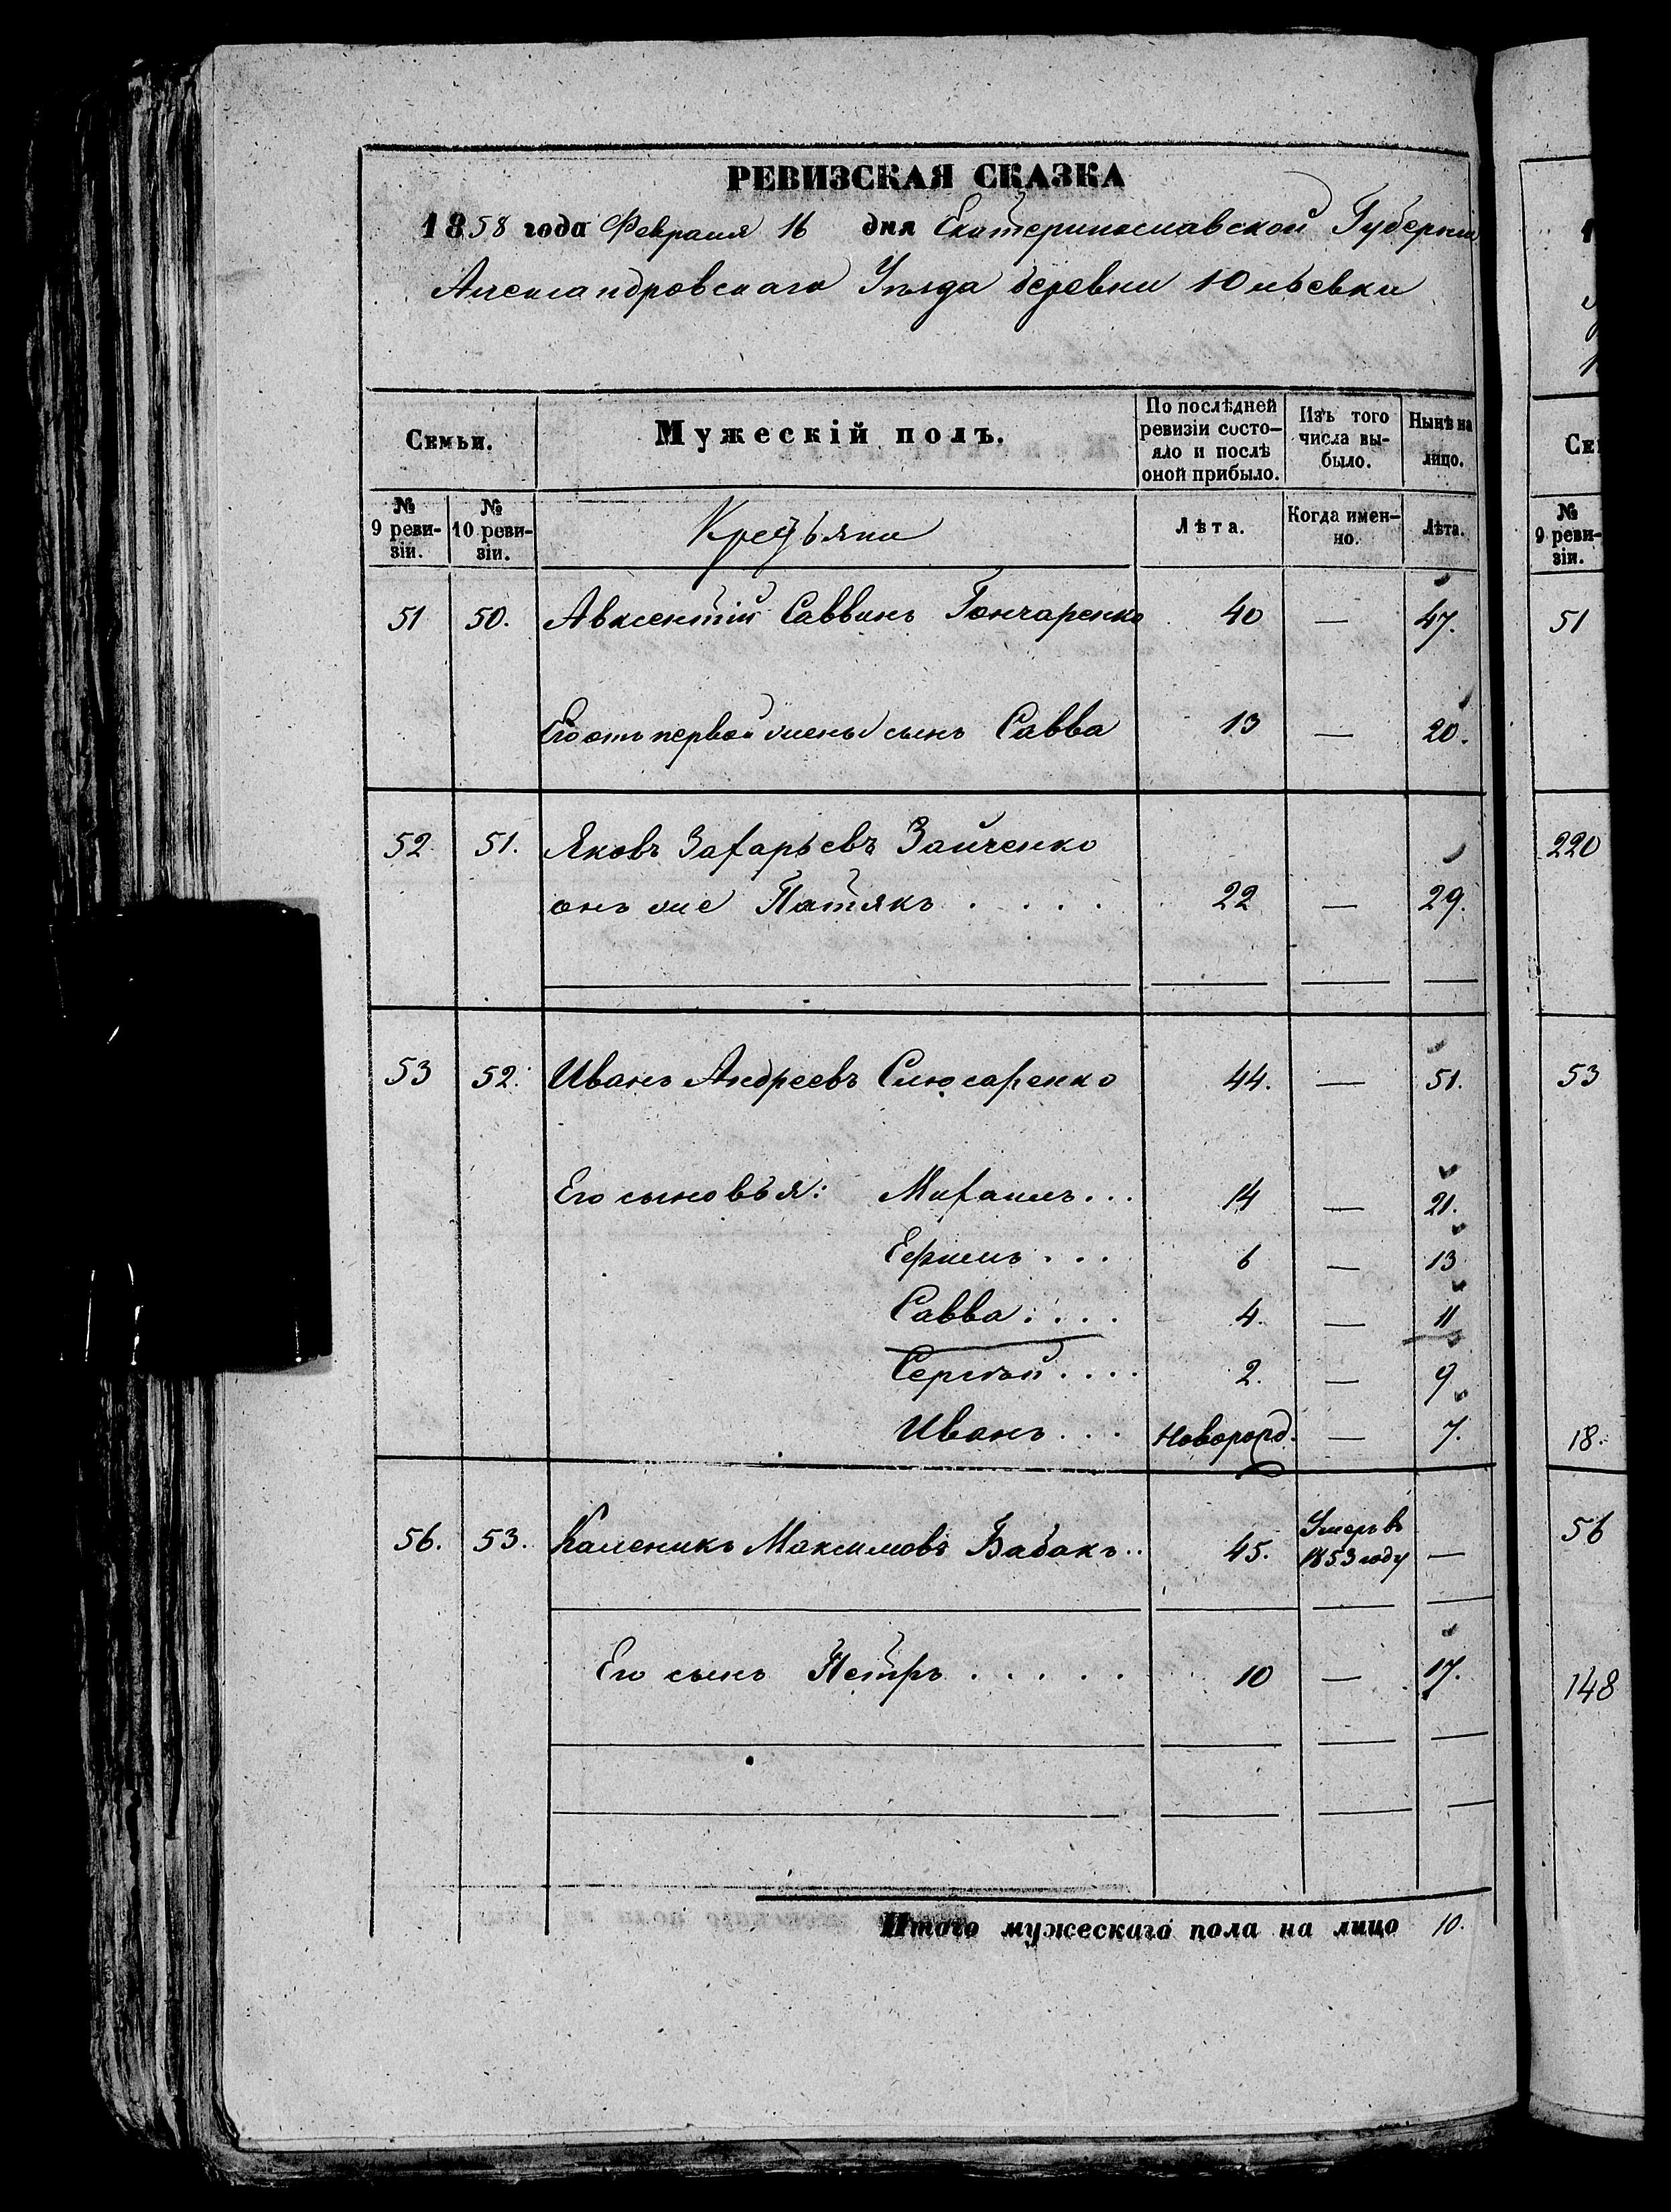 РЕВИЗСКАЯ СКАЗКА
1858 года Февраля 16 дня Екатеринославской Губерніи
Александровскаго Уѣзда деревни Юльевки
Семьи.
Мужескій полъ.
По послѣдней ревизіи состо-
яло и послѣ
оной прибыло.
Изъ того
числа вы-
было.
Нынѣ на
лицо.
№
9 реви-
зіи.
№
10 реви-
зіи.
Крестьяне
Лѣта.
Когда имен-
но.
Лѣта.
51 50. Авксентій Саввинъ Гончаренко 40 — 47.
Его отъ первой жены сынъ Савва 13 — 20.
52 51. Яковъ Захарьевъ Зайченко
онъ же Патякъ . . . . 22 — 29.
53 52. Иванъ Андреевъ Слюсаренко 44. — 51.
Его сыновья: Михаилъ... 14 — 21.
Ефимъ . . . 6 — 13
Савва . . . . 4. — 11
Сергѣй . . . . 2. — 9
Иванъ . . . Новорожд. — 7.
56. 53. Каленикъ Максимовъ Бабакъ.. 45. Умеръ въ
1853 году —
Его сынъ Петръ . . . . . 10 — 17.
Итого мужескаго пола на лицо 10.
Се
№
9 реви-
зіи.
51
220
53
18.
56
148